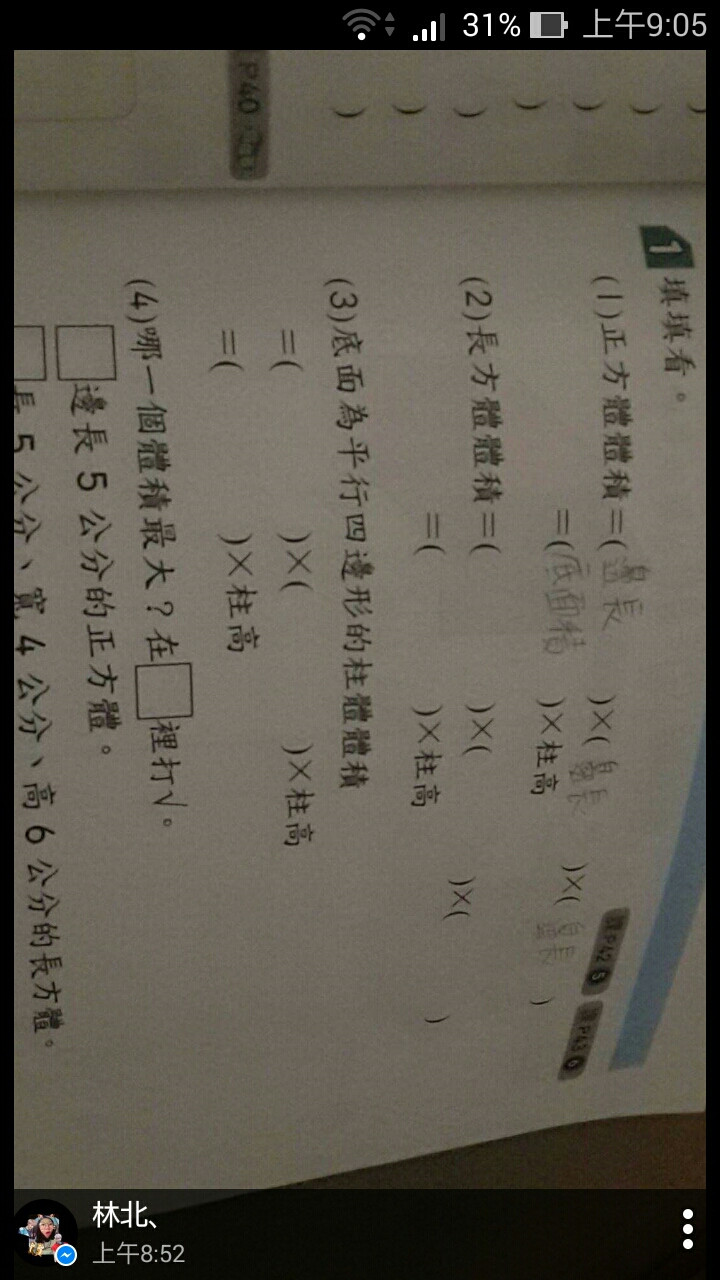 31% 上午9:05
P40
1 填填看。
課P42 5 課P43 6
(1)正方體體積=(邊長)×(邊長)×(邊長)
=(底面積)×柱高
(2)長方體體積=( )×( )×( )
=( )×柱高
(3)底面為平行四邊形的柱體體積
=( )×( )×柱高
=( )×柱高
(4)哪一個體積最大?在□裡打√。
□邊長 5 公分的正方體。
□長 5 公分、寬 4 公分、高 6 公分的長方體。
林北、
上午8:52